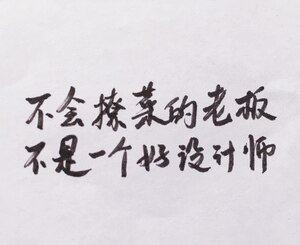 不会撩菜的老板
不是一个好设计师